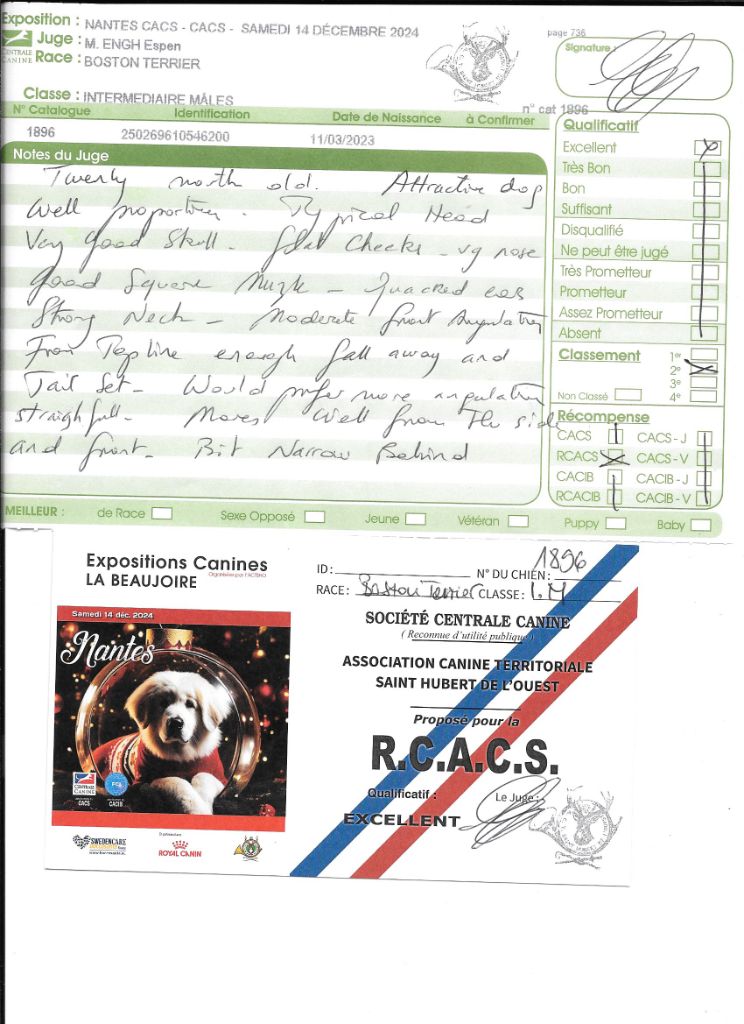 Exposition : NANTES CACS - CACS - SAMEDI 14 DÉCEMBRE 2024
page 736
Juge : M. ENGH Espen
Signature :
CENTRALE CANINE
Race : BOSTON TERRIER
Classe : INTERMEDIAIRE MÂLES
n° cat 1896
N° Catalogue Identification Date de Naissance à Confirmer
1896 250269610546200 11/03/2023
Notes du Juge
Twenty month old. Attractive dog
Well proportion. Typical Head
Very good Skull - flat Cheeks - vg nose
good Square Muzle - ears
Strong Neck - Moderate front Angulation
From Topline enough fall away and
Tail Set - Would prefer more angulation
straigh full - Moves Well from The side
and front - Bit Narrow Behind
Qualificatif
Excellent
Très Bon
Bon
Suffisant
Disqualifié
Ne peut être jugé
Très Prometteur
Prometteur
Assez Prometteur
Absent
Classement 1er
2e
3e
Non Classé 4e
Récompense
CACS CACS - J
RCACS CACS - V
CACIB CACIB - J
RCACIB CACIB - V
MEILLEUR : de Race Sexe Opposé Jeune Vétéran Puppy Baby
Expositions Canines
LA BEAUJOIRE
Samedi 14 déc. 2024
Nantes
CENTRALE CANINE
CACS
CACIB
SWEDENCARE
ROYAL CANIN
ID :
N° DU CHIEN : 1896
RACE : Boston Terrier CLASSE : I.M
SOCIÉTÉ CENTRALE CANINE
( Reconnue d'utilité publique )
ASSOCIATION CANINE TERRITORIALE
SAINT HUBERT DE L'OUEST
Proposé pour la
R.C.A.C.S.
Qualificatif :
Le Juge :
EXCELLENT